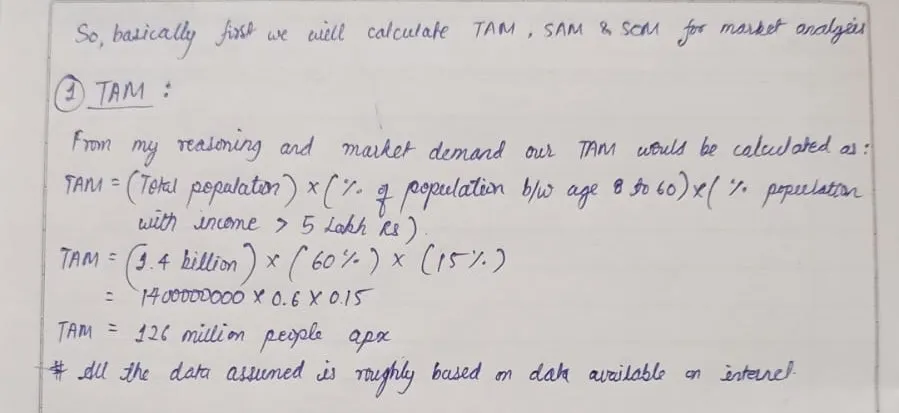 So, basically first we will calculate TAM, SAM & SOM for market analysis
① TAM :
From my reasoning and market demand our TAM would be calculated as :
TAM = (Total population) × (% of population b/w age 8 to 60) × (% population
with income > 5 Lakh Rs).
TAM = (1.4 billion) × (60%) × (15%)
= 1400000000 × 0.6 × 0.15
TAM = 126 million people apx
# All the data assumed is roughly based on data available on internet.